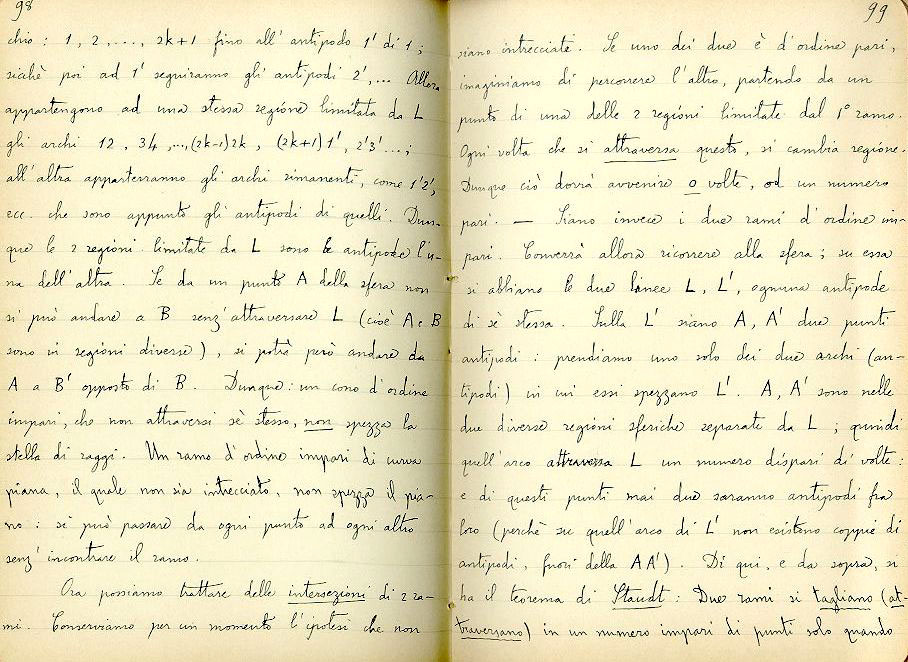 98
chio: 1, 2, ..., 2k+1 fino all'antipodo 1' di 1;
sicchè poi ad 1' seguiranno gli antipodi 2',... Allora
appartengono ad una stessa regione limitata da L
gli archi 12, 34, ..., (2k-1)2k, (2k+1)1', 2'3'...;
all'altra apparterranno gli archi rimanenti, come 1'2',
ecc. che sono appunto gli antipodi di quelli. Dun-
que le 2 regioni limitate da L sono le antipode l'u-
na dell'altra. Se da un punto A della sfera non
si può andare a B senz'attraversare L (cioè A e B
sono in regioni diverse), si potrà però andare da
A a B' opposto di B. Dunque: un cono d'ordine
impari, che non attraversi sè stesso, non spezza la
stella di raggi. Un ramo d'ordine impari di curva
piana, il quale non sia intrecciato, non spezza il pia-
no: si può passare da ogni punto ad ogni altro
senz'incontrare il ramo.
Ora possiamo trattare delle intersezioni di 2 ra-
mi. Conserviamo per un momento l'ipotesi che non
99
siano intrecciati. Se uno dei due è d'ordine pari,
imaginiamo di percorrere l'altro, partendo da un
punto di una delle 2 regioni limitate dal 1° ramo.
Ogni volta che si attraversa questo, si cambia regione.
Dunque ciò dovrà avvenire 0 volte, od un numero
pari. — Siano invece i due rami d'ordine im-
pari. Converrà allora ricorrere alla sfera; su essa
si abbiano le due linee L, L', ognuna antipode
di sè stessa. Sulla L' siano A, A' due punti
antipodi: prendiamo uno solo dei due archi (an-
tipodi) in cui essi spezzano L'. A, A' sono nelle
due diverse regioni sferiche separate da L; quindi
quell'arco attraversa L un numero dispari di volte:
e di questi punti mai due saranno antipodi fra
loro (perchè su quell'arco di L' non esistono coppie di
antipodi, fuori della AA'). Di qui, e da sopra, si
ha il teorema di Staudt: Due rami si tagliano (at-
traversano) in un numero impari di punti solo quando